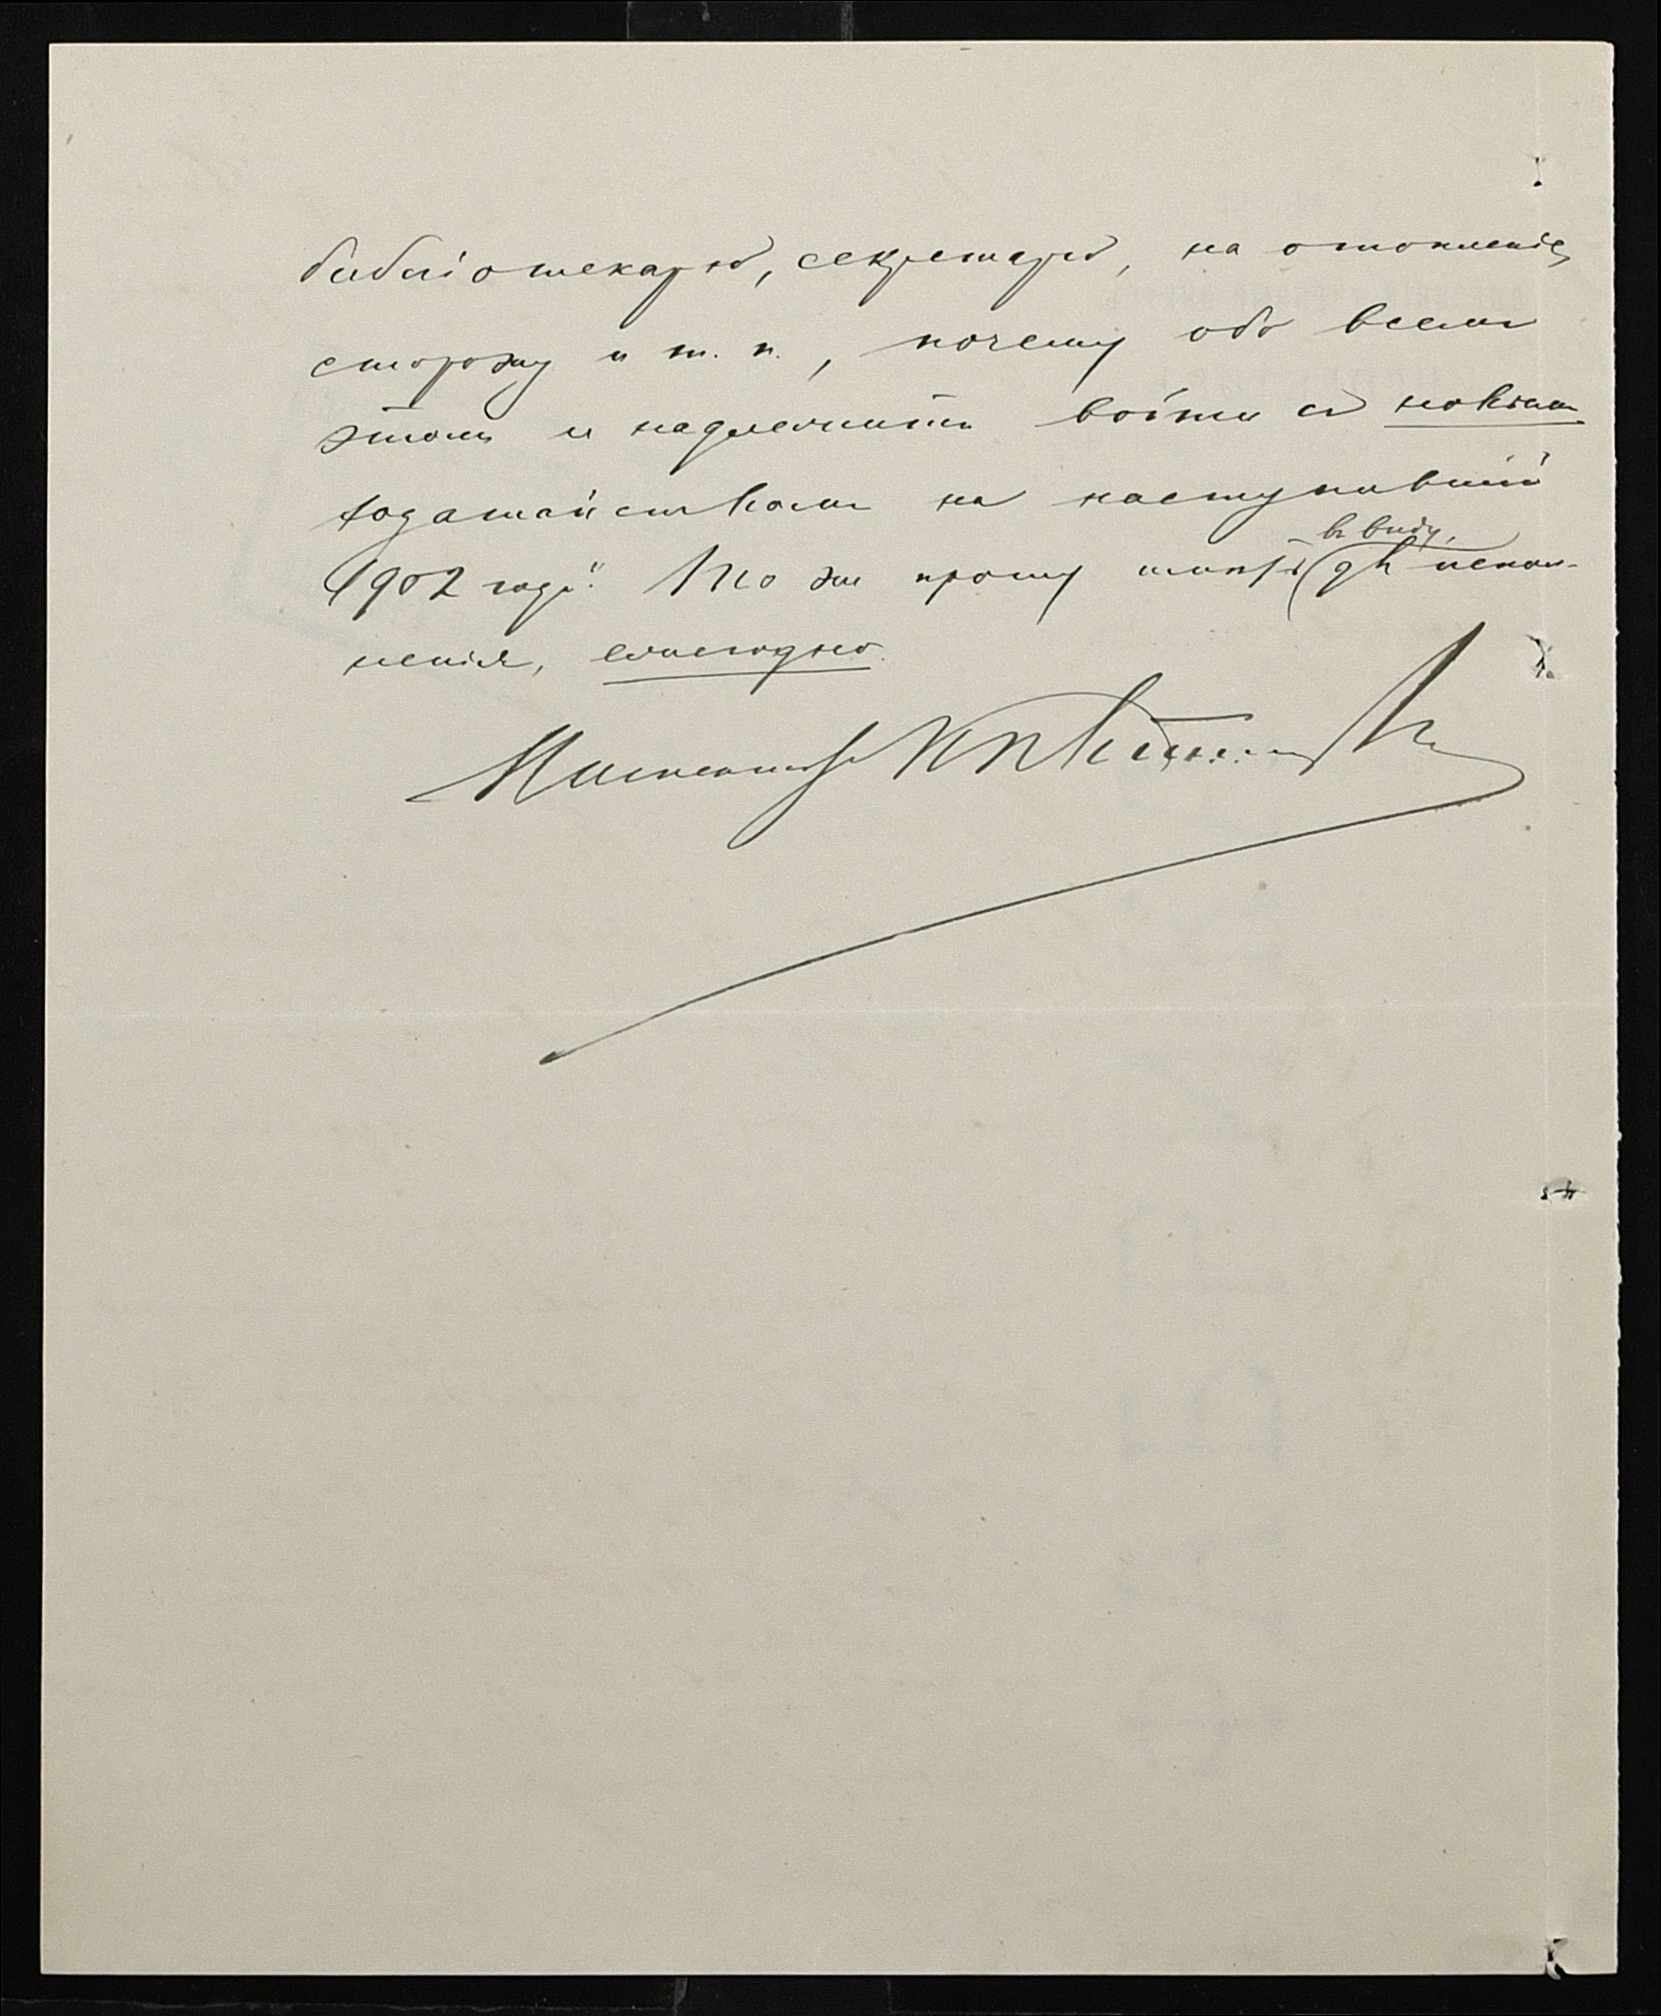 библіотекарю, секретарю, на отопленіе,
сторожу и т. п., почему обо всемъ
этомъ и надлежитъ войти съ новымъ
ходатайствомъ на наступившій
1902 годъ". То же прошу имѣть
въ виду,
для испол-
ненія, ежегодно.